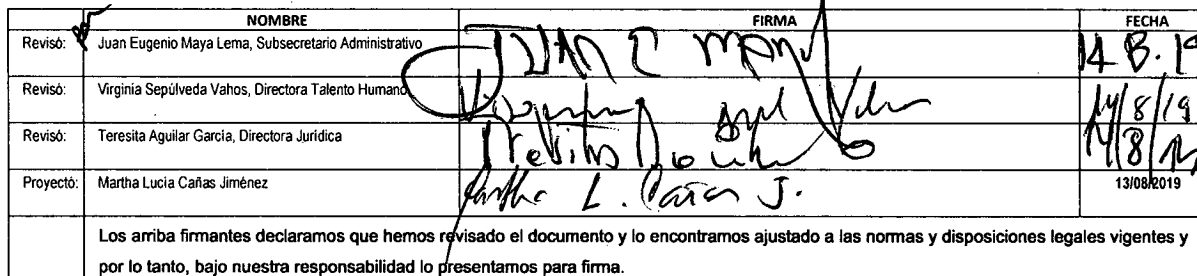 NOMBRE FIRMA FECHA
Revisó: Juan Eugenio Maya Lema, Subsecretario Administrativo JUAN E MAYA 14.8.19
Revisó: Virginia Sepúlveda Vahos, Directora Talento Humano 14/8/19
Revisó: Teresita Aguilar García, Directora Jurídica 14/8/19
Proyectó: Martha Lucia Cañas Jiménez Martha L. Cañas J. 13/08/2019
Los arriba firmantes declaramos que hemos revisado el documento y lo encontramos ajustado a las normas y disposiciones legales vigentes y
por lo tanto, bajo nuestra responsabilidad lo presentamos para firma.